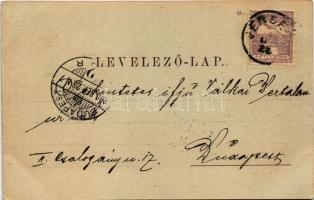 LEVELEZŐ-LAP.
BUDAPEST
Tekintetes ifjú Jálkai Bertalan
úr
I. Csalogány u. 17.
Budapest